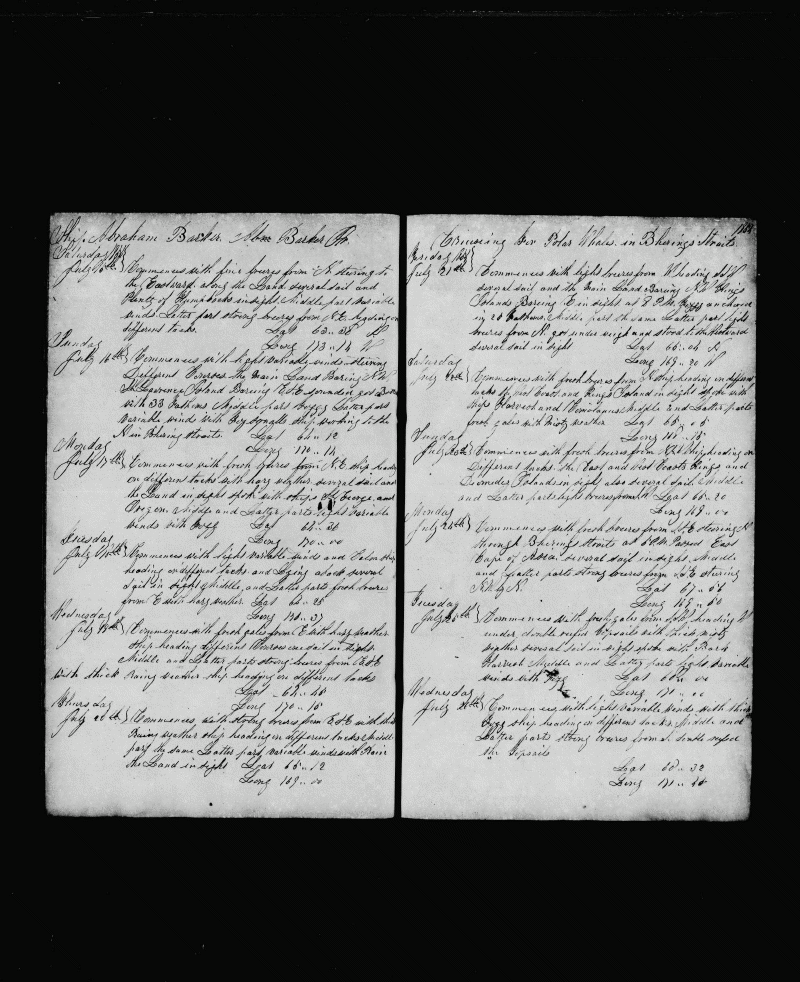 Ship Abraham Barker. Abm Barker Pr.
Saturday
July 15th } Commences with fine breezes from N. steering to
the Eastward along the Land several sail and
Plenty of Humpbacks in sight Middle part variable
winds Latter part strong breezes from N.E. heading on
different tacks. Lat 63 .. 38 N
Long 173 .. 14 W
Sunday
July 16th } Commences with light variable winds steering
Different Courses the Main Land Baring N.W.
St Lawrence Island Baring E.S.E.
with 33 Fathoms Middle part Foggy Latter part
variable winds with Fog ship working to the
N in Bhering Straits. Lat 64 .. 12
Long 170 .. 14
Monday
July 17th } Commences with fresh breezes from N.E. ship heading
on different tacks with hazy weather several sail and
the Land in sight spoke with ships St George and
Oregon Middle and Latter parts light variable
winds with Fogg Lat 64 .. 36
Long 170 .. 00
Tuesday
July 18th } Commences with Light variable winds and Calm ship
heading on different tacks and Lying aback several
sail in sight Middle and Latter parts fresh breeze
from E with hazy weather Lat 65 .. 25
Long 170 .. 37
Wednesday
July 19th } Commences with fresh gales from E with hazy weather
ship heading different Courses one sail in sight
Middle and Latter parts strong breezes from E.S.E
with thick Rainy weather ship heading on different tacks
Lat 64 .. 48
Long 170 .. 15
Thursday
July 20th } Commences with strong breezes from E.S.E with thick
Rainy weather ship heading on different tacks Middle
part the same Latter part variable winds with Rain
the Land in sight Lat 65 .. 12
Long 169 .. 00
Cruising for Polar Whales in Bherings Straits
Friday
July 21st } Commences with light breezes from W heading
several sail and the Main Land Baring N.W. Kings
Islands Baring E in sight at 8 P.M. anchored
in 20 Fathoms. Middle part the same Latter part light
breezes from N. got under weigh and stood to the Westward
several sail in sight Lat 65 .. 04 N
Long 169 .. 30 W
Saturday
July 22nd } Commences with fresh breezes from N ship heading on different
tacks the East Coast and Kings Island in sight spoke with
ships Harvest and Venetian Middle and Latter parts
fresh gales with Misty weather Lat 65 .. 05
Long 168 .. 15
Sunday
July 23rd } Commences with fresh breezes from ship heading on
Different tacks the East and West Coasts Kings and
Diomides Islands in sight also several sail Middle
and Latter parts light breezes from Lat 65 .. 20
Long 169 .. 00
Monday
July 24th } Commences with fresh breezes from S.E steering N
through Bherings Straits at P.M. Passed East
Cape of Asia. several sail in sight. Middle
and Latter parts strong breezes from S.E steering
N.W. by N. Lat 67 .. 06
Long 169 .. 50
Tuesday
July 25th } Commences with fresh gales from heading
under double reefed Topsails with thick misty
weather several sail in sight spoke with Bark
Harvest Middle and Latter parts light variable
winds with Fogg Lat 68 .. 00
Long 171 .. 00
Wednesday
July 26th } Commences with light variable winds with thick
Fogg ship heading on different tacks Middle and
Latter parts strong breezes from double reefed
the Topsails
Lat 68 .. 32
Long 171 .. 40